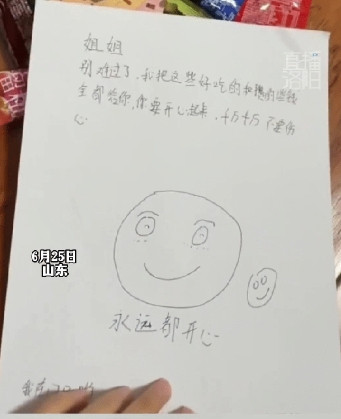 姐姐
别难过了,我把这些好吃的和我的零钱
全都给你,你要开心起来,千万千万不要伤
心
6月25日
山东
永远都开心